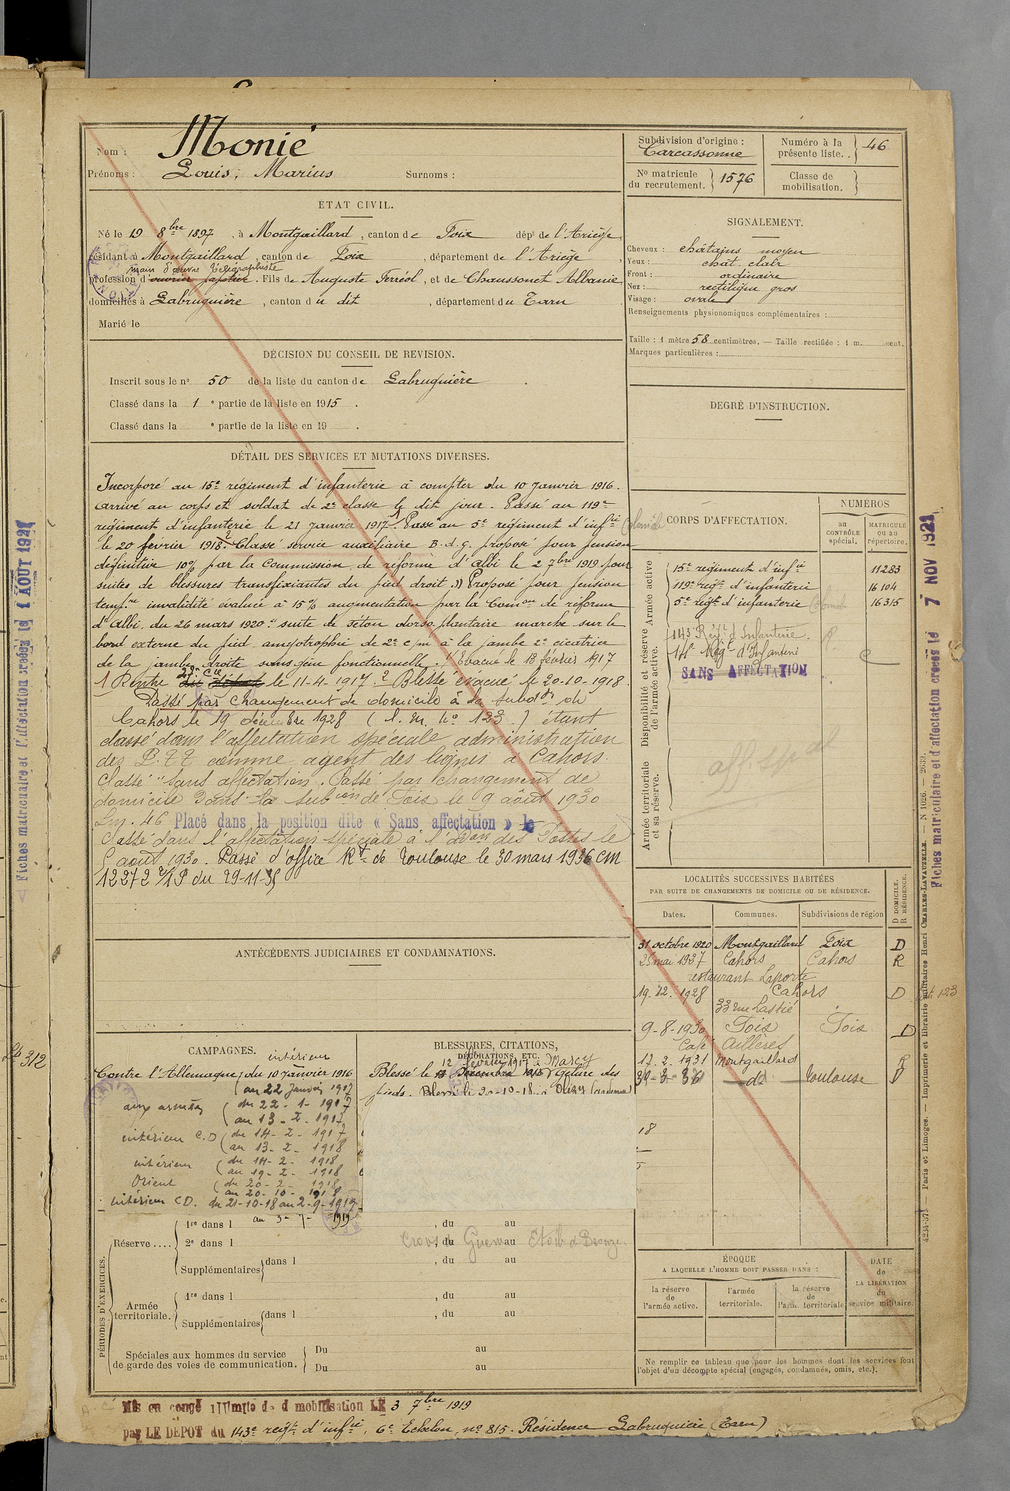 Nom : Monié
Prénoms : Louis, Marius Surnoms :
ETAT CIVIL.
Né le 19 8bre 1897, à Montgaillard, canton de Foix dépt de l'Ariège,
résidant à Montgaillard, canton de Foix, département de l'Ariège
main d'œuvre télégraphiste
profession d'ouvrier papetier. Fils de Auguste Ferréol, et de Chaussonet Albanie,
domiciliés à Labruguière, canton du dit, département du Tarn
Marié le
DÉCISION DU CONSEIL DE REVISION.
Inscrit sous le no 50 de la liste du canton de Labruguière.
Classé dans la 1e partie de la liste en 1915.
Classé dans la e partie de la liste en 19 .
DÉTAIL DES SERVICES ET MUTATIONS DIVERSES.
Incorporé au 15e régiment d'infanterie à compter du 10 janvier 1916.
Arrivé au corps et soldat de 2e classe le dit jour. Passé au 119e
régiment d'infanterie le 21 janvier 1917. 1 Passé au 5e régiment d'infrie Colonial
le 20 février 1918. 2 Classé service auxiliaire B.d.g. proposé pour pension
définitive 10% par la Commission de réforme d'Albi le 2 7bre 1919 pour
suites de blessures transfixiantes du pied droit. Proposé pour pension
tempre invalidité évaluée à 15% augmentation par la Comon de réforme
d'Albi, du 26 mars 1920 : suite de séton dorso plantaire marche sur le
bord externe du pied amyotrophie de 2c/m à la jambe 2e cicatrice
de la jambe droite sans gêne fonctionnelle. / Evacué le 13 février 1917
1 Rentré le 11-4-1917. 2 Blessé évacué le 20-10-1918.
Passé par changement de domicile à la subdon de
Cahors le 19 décembre 1928 (L. M. no 123) étant
classé dans l'affectation spéciale administration
des P.T.T. comme agent des lignes à Cahors.
Classé "Sans affectation. Passé par changement de
domicile dans la subion de Foix le 9 août 1930
Lm. 46 Placé dans la position dite « Sans affectation » le
Classé dans l'affectation spéciale à l'Don des Postes le
août 1930. Passé d'office Rt de Toulouse le 30 mars 1936 CM
12272 2/1P du 29-11-35
ANTÉCÉDENTS JUDICIAIRES ET CONDAMNATIONS.
CAMPAGNES.
intérieur
Contre l'Allemagne, du 10 janvier 1916
(au 22 janvier 1917
aux armées (du 22-1-1917
(au 13-2-1917
intérieur C.D (du 14-2-1917
(au 13-2-1918
intérieur (du 14-2-1918
(au 19-2-1918
Orient (du 20-2-1918
(au 20-10-1918
intérieur CD. du 21-10-18 au 2-9-1919
au 3-7-1919
BLESSURES, CITATIONS,
DÉCORATIONS, ETC.
12 février 1917 à Marcy
Blessé le Gelure des
pieds. Blessé le 20-10-18
PÉRIODES D'EXERCICES.
Réserve....
1re dans l , du au
2e dans l , du au
Croix de Guerre Etoile de Bronze
Supplémentaires dans l , du au
Armée territoriale.
1re dans l , du au
Supplémentaires dans l , du au
Spéciales aux hommes du service de garde des voies de communication.
Du au
Du au
Mis en congé illimité de démobilisation LE 3 7bre 1919
par LE DÉPOT du 143e régt d'infrie, 6e Echelon, no 815. Résidence Labruguière (Tarn)
Subdivision d'origine :
Carcassonne
Numéro à la présente liste.. 46
No matricule du recrutement. 1576
Classe de mobilisation.
SIGNALEMENT.
Cheveux : châtains moyen
Yeux : chât clair
Front : ordinaire
Nez : rectiligne gros
Visage : ovale
Renseignements physionomiques complémentaires :
Taille : 1 mètre 58 centimètres. — Taille rectifiée : 1 m. cent.
Marques particulières :
DEGRÉ D'INSTRUCTION.
CORPS D'AFFECTATION.
NUMÉROS
au CONTRÔLE spécial.
MATRICULE OU au répertoire.
Armée active
15e régiment d'infie 11283
119e régt d'infanterie 16104
5e régt d'infanterie Colonial 16315
Disponibilité et réserve de l'armée active.
143 Régt d'Infanterie.
14e Régt d'Infanterie
SANS AFFECTATION
aff. spal
Armée territoriale et sa réserve.
LOCALITÉS SUCCESSIVES HABITÉES
PAR SUITE DE CHANGEMENTS DE DOMICILE OU DE RÉSIDENCE.
Dates. Communes. Subdivisions de région
D DOMICILE. R RÉSIDENCE.
31 octobre 1920 Montgaillard Foix D
25 mai 1927 Cahors Cahors R
restaurant Laporte
19.12.1928 Cahors D
33 rue Lastié
9-8-1930 Foix Foix D
Café Aillères
12.2.1931 Montgaillard R
30-3-36 — do — Toulouse D
ÉPOQUE
A LAQUELLE L'HOMME DOIT PASSER DANS :
la réserve de l'armée active.
l'armée territoriale.
la réserve de l'arm. territoriale
DATE de LA LIBÉRATION du service militaire.
Ne remplir ce tableau que pour les hommes dont les services font l'objet d'un décompte spécial (engagés, condamnés, omis, etc.).
Fiches matriculaire et d'affectation créées le 7 NOV 1921
Fiches matriculaire et d'affectation créées le 1 AOUT 1921
4234-373. — Paris et Limoges. — Imprimerie et librairie militaires Henri CHARLES-LAVAUZELLE.
312